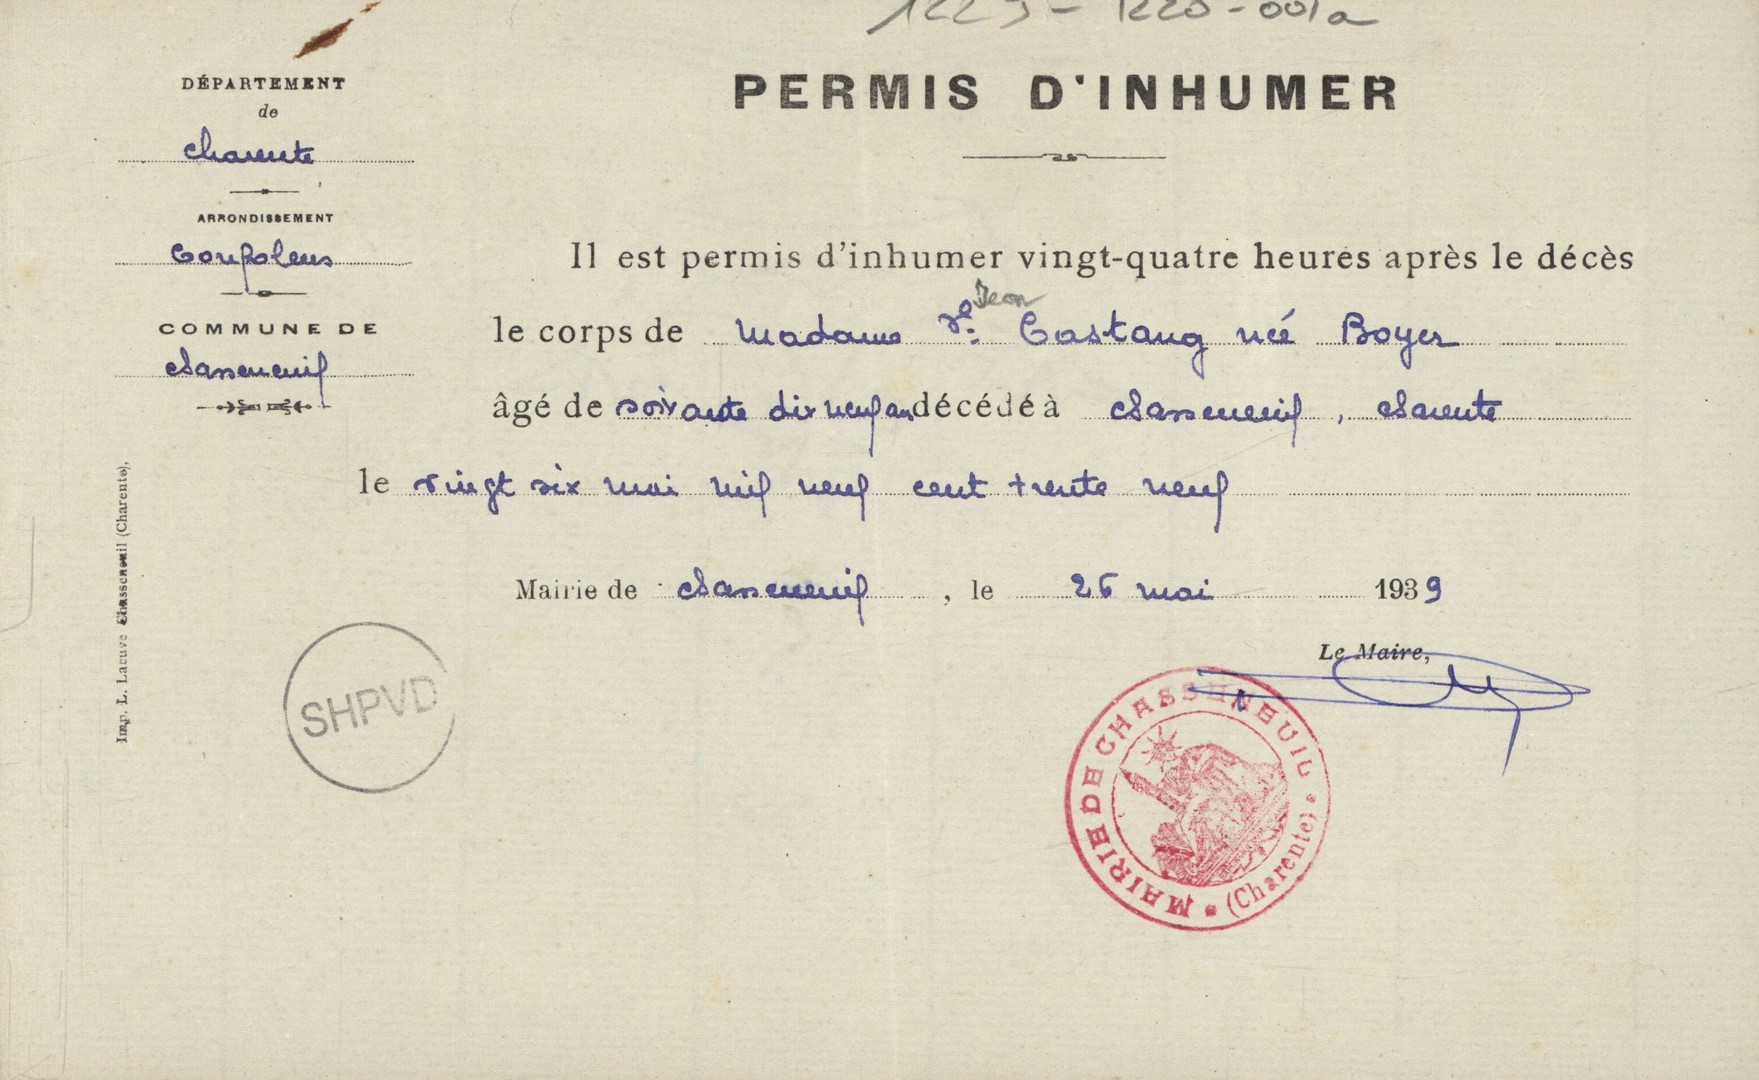 PERMIS D'INHUMER
DÉPARTEMENT
de
Charente
ARRONDISSEMENT
Confolens
COMMUNE DE
Chasseneuil
Il est permis d'inhumer vingt-quatre heures après le décès
Jean
le corps de Madame Vve Castang née Boyer
âgé de soixante dix neuf ans décédé à Chasseneuil, Charente
le vingt six mai mil neuf cent trente neuf
Mairie de Chasseneuil, le 26 mai 1939
Le Maire,
SHPVD
MAIRIE DE CHASSENEUIL
(Charente)
Imp. L. Lacuve Chasseneuil (Charente).